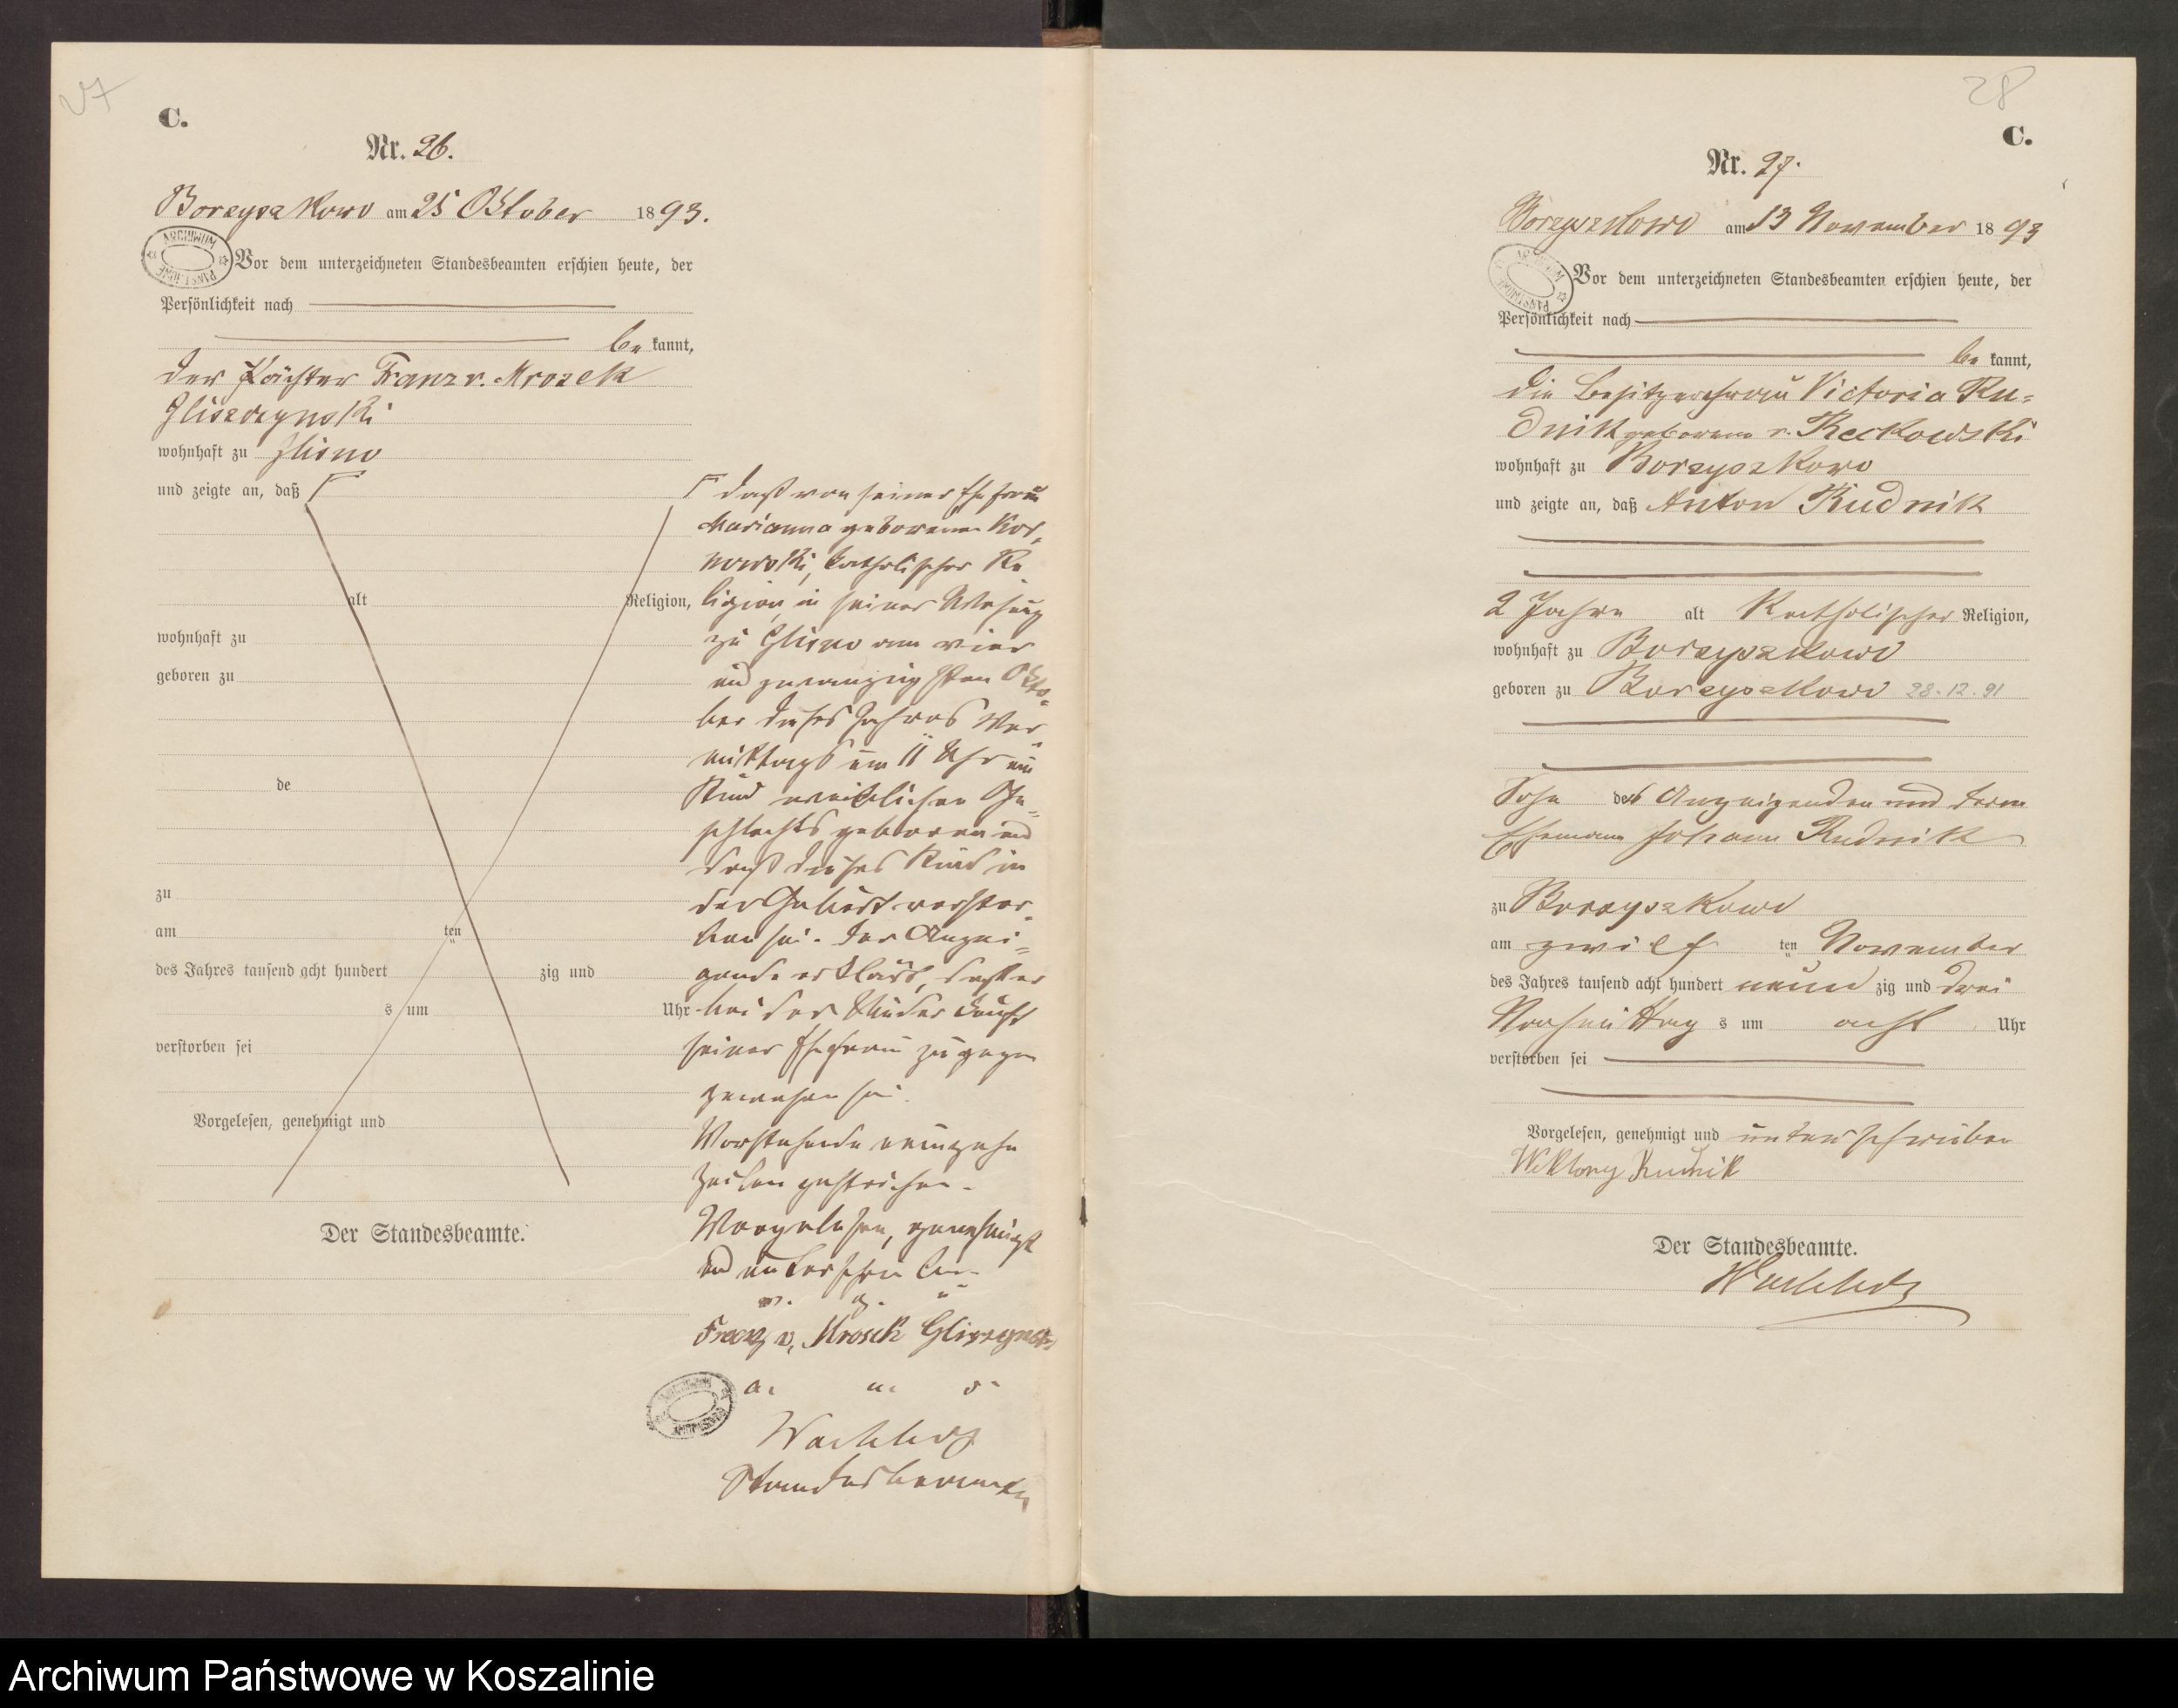 27
C.
Nr. 26.
Borzyszkowo am 25 Oktober 1893.
ARCHIWUM PAŃSTWOWE
Vor dem unterzeichneten Standesbeamten erschien heute, der
Persönlichkeit nach
be kannt,
der Pächter Franz v. Mrozek
Gliszczynski
wohnhaft zu Glisno
und zeigte an, daß
alt Religion,
wohnhaft zu
geboren zu
de
zu
am ten
des Jahres tausend acht hundert zig und
s um Uhr
verstorben sei
Vorgelesen, genehmigt und
Der Standesbeamte.
daß von seiner Ehefrau
Marianna geborenen Kos-
nowski, katholischer Re
ligion, in seiner Wohnung
zu Glisno am vier
und zwanzigsten Okto-
ber dieses Jahres Vor-
mittags um 11 Uhr ein
Kind weiblichen Ge-
schlechts geboren und
daß dieses Kind in
der Geburt verstor-
ben sei. Der Anzei-
gende erklärt, daß er
bei der Niederkunft
seiner Ehefrau zugegen
gewesen sei.
Vorstehende neunzehn
Zeilen gestrichen.
Vorgelesen, genehmigt
und unterschrieben
v. g. u.
Franz v. Mrosek
a. u. s.
Standesbeamter
28
C.
Nr. 27.
Borzyszkowo am 13 November 1893
ARCHIWUM PAŃSTWOWE
Vor dem unterzeichneten Standesbeamten erschien heute, der
Persönlichkeit nach
be kannt,
die Besitzerfrau Victoria Ru-
dnik geborene v. Reckowski
wohnhaft zu Borzyszkowo
und zeigte an, daß Anton Rudnik
2 Jahre alt Katholischer Religion,
wohnhaft zu Borzyszkowo
geboren zu Borzyszkowo 28.12.91
Sohn des Anzeigenden und deren
Ehemann Johann Rudnik
zu Borzyszkowo
am zwölf ten November
des Jahres tausend acht hundert neun zig und drei
Nachmittag s um acht Uhr
verstorben sei
Vorgelesen, genehmigt und unterschrieben
Wiktorya Rudnik
Der Standesbeamte.
Archiwum Państwowe w Koszalinie